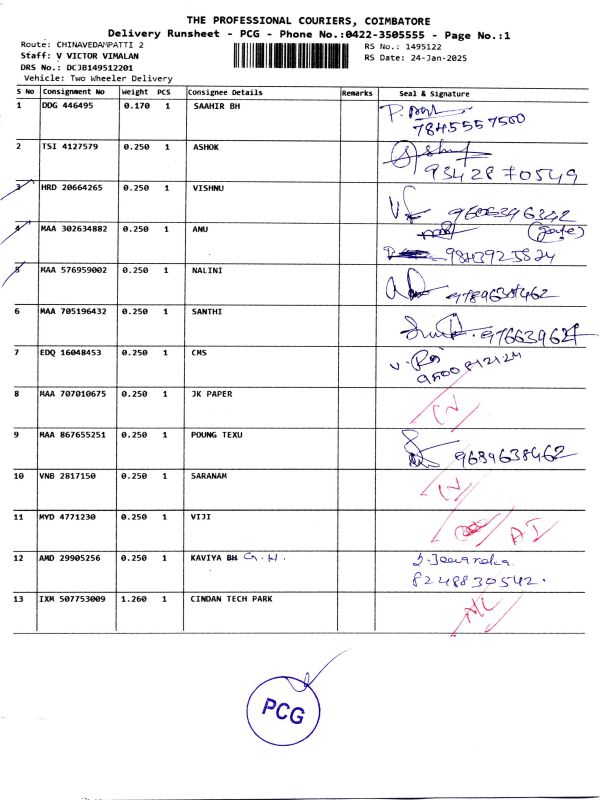 THE PROFESSIONAL COURIERS, COIMBATORE
Delivery Runsheet - PCG - Phone No.:0422-3505555 - Page No.:1
Route: CHINAVEDAMPATTI 2
RS No.: 1495122
Staff: V VICTOR VIMALAN
RS Date: 24-Jan-2025
DRS No.: DCJB149512201
Vehicle: Two Wheeler Delivery
S No Consignment No Weight PCS Consignee Details Remarks Seal & Signature
1 DDG 446495 0.170 1 SAAHIR BH
7845557500
2 TSI 4127579 0.250 1 ASHOK
9342870549
3 HRD 20664265 0.250 1 VISHNU
9606396342
4 MAA 302634882 0.250 1 ANU
(gate)
9843925824
5 MAA 576959002 0.250 1 NALINI
6 MAA 705196432 0.250 1 SANTHI
7 EDQ 16048453 0.250 1 CMS
9500812124
8 MAA 707010675 0.250 1 JK PAPER
9 MAA 867655251 0.250 1 POUNG TEXU
9689638462
10 VNB 2817150 0.250 1 SARANAM
11 MYD 4771230 0.250 1 VIJI
12 AMD 29905256 0.250 1 KAVIYA BH G.H.
8248830542.
13 IXM 507753009 1.260 1 CINDAN TECH PARK
PCG